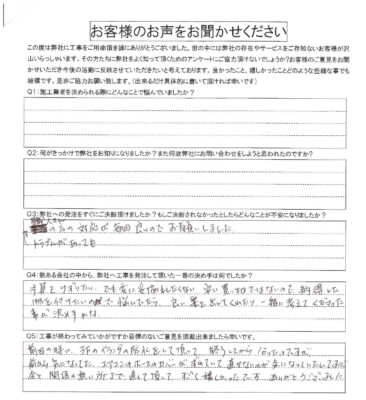 お客様のお声をお聞かせください
この度は弊社に工事をご用命頂き誠にありがとうございました。世の中には弊社の存在やサービスをご存知ないお客様が沢
山いらっしゃいます。その方たちに弊社をよく知って頂くためのアンケートにご協力頂けないでしょうか?お客様のご意見をお聞
かせいただき今後の活動に反映させていただきたいと考えております。良かったこと、嬉しかったことどのような些細な事でも
結構です。是非ご協力お願い致します。(出来るだけ具体的に書いて頂ければ幸いです)
Q1:施工業者を決められる際にどんなことで悩んでいましたか?
Q2:何がきっかけで弊社をお知りになりましたか?また何故弊社にお問い合わせをしようと思われたのですか?
Q3:弊社への発注をすぐにご決断頂けましたか?もしご決断されなかったとしたらどんなことが不安になりましたか?
の方の対応が毎回良いのでお願いしました
トラブルがあっても
Q4:数ある会社の中から、弊社へ工事を発注して頂いた一番の決め手は何でしたか?
予算をけずりたい、でも変に妥協したくない、安い買い物ではないので、納得した
物を付けたいので悩んでいたら、良い案を出してくれたり、一緒に考えてくださった
事が決め手かな
Q5:工事が終わってみていかがですか目標のないご意見を頂戴出来ましたら幸いです。
前回の時に、下のベランダの防水をして頂いて、終了してから
前から気になってた、エアコンのホースのカバーが
全く関係の無い所まで直して頂いて、すごく嬉しかったです。ありがとうございました